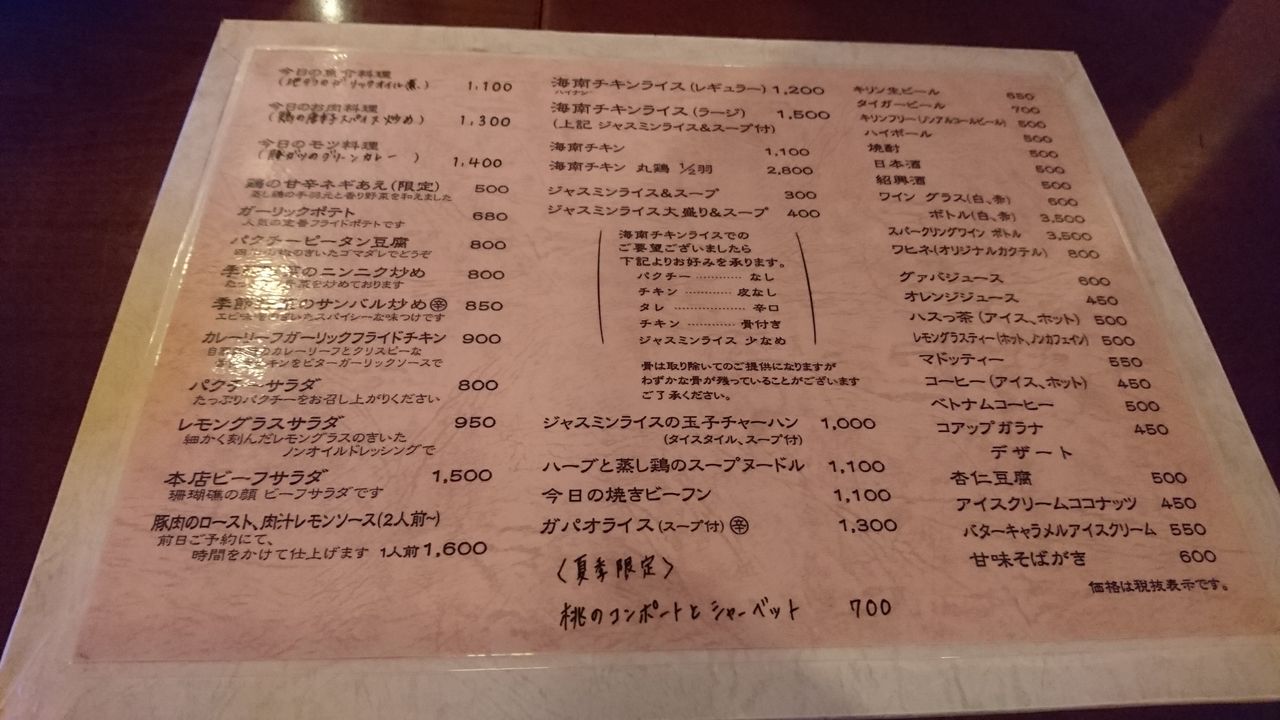 今日の魚介料理
1,100
今日のお肉料理
(鶏の唐辛子スパイス炒め) 1,300
今日のモツ料理
(豚ガツのグリーンカレー ) 1,400
鶏の甘辛ネギあえ(限定) 500
蒸し鶏の手羽元と香り野菜を和えました
ガーリックポテト 680
人気の定番フライドポテトです
パクチーピータン豆腐 800
のきいたゴマダレでどうぞ
のニンニク炒め 800
を炒めております
のサンバル炒め 辛 850
いたスパイシーな味つけです
カレーリーフガーリックフライドチキン 900
のカレーリーフとクリスピーな
チキンをビターガーリックソースで
パクチーサラダ 800
たっぷりパクチーをお召し上がりください
レモングラスサラダ 950
細かく刻んだレモングラスのきいた
ノンオイルドレッシングで
本店ビーフサラダ 1,500
珊瑚礁の顔 ビーフサラダです
豚肉のロースト、肉汁レモンソース(2人前~)
前日ご予約にて、
時間をかけて仕上げます 1人前 1,600
海南チキンライス(レギュラー) 1,200
ハイナン
海南チキンライス(ラージ) 1,500
(上記 ジャスミンライス&スープ付)
海南チキン 1,100
海南チキン 丸鶏 1/2羽 2,800
ジャスミンライス&スープ 300
ジャスミンライス大盛り&スープ 400
海南チキンライスでの
ご要望ございましたら
下記よりお好みを承ります。
パクチー ………… なし
チキン ………… 皮なし
タレ ………… 辛口
チキン ………… 骨付き
ジャスミンライス 少なめ
骨は取り除いてのご提供になりますが
わずかな骨が残っていることがございます
ご了承ください。
ジャスミンライスの玉子チャーハン 1,000
(タイスタイル、スープ付)
ハーブと蒸し鶏のスープヌードル 1,100
今日の焼きビーフン 1,100
ガパオライス(スープ付) 辛 1,300
〈夏季限定〉
桃のコンポートとシャーベット 700
キリン生ビール 550
タイガービール 700
キリンフリー(ノンアルコールビール) 500
ハイボール 500
焼酎 500
日本酒 500
紹興酒 500
ワイン グラス(白、赤) 600
ボトル(白、赤) 3,500
スパークリングワイン ボトル 3,500
ワヒネ(オリジナルカクテル) 800
グァバジュース 600
オレンジジュース 450
ハスっ茶(アイス、ホット) 500
レモングラスティー(ホット、ノンカフェイン) 500
マドッティー 550
コーヒー(アイス、ホット) 450
ベトナムコーヒー 500
コアップガラナ 450
デザート
杏仁豆腐 500
アイスクリームココナッツ 450
バターキャラメルアイスクリーム 550
甘味そばがき 600
価格は税抜表示です。